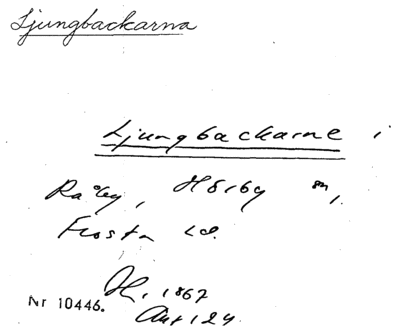 Ljungbackarna
Ljungbackarne i
Råby, Hörby sn,
Frosta hd.
H. 1867
Nr 10446.